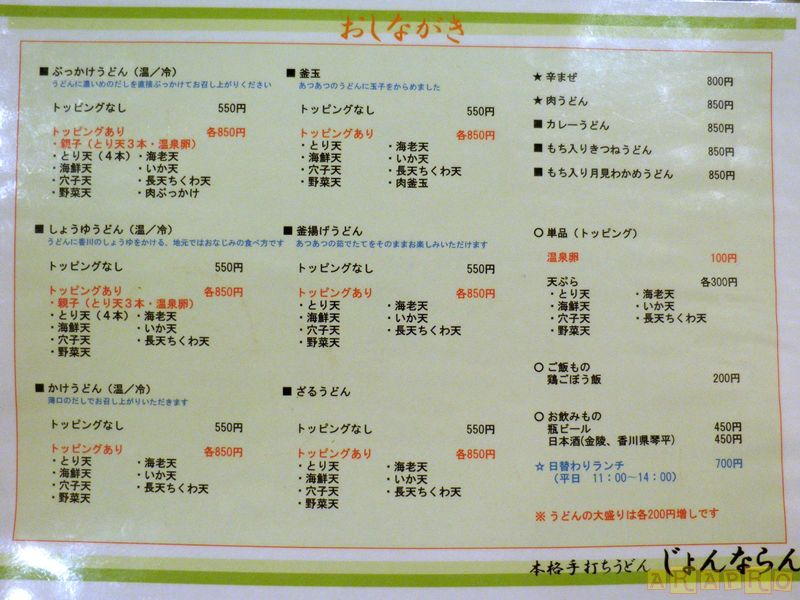 おしながき
■ ぶっかけうどん（温／冷）
うどんに濃いめのだしを直接ぶっかけてお召し上がりください
トッピングなし 550円
トッピングあり 各850円
・親子（とり天３本・温泉卵）
・とり天（４本）・海老天
・海鮮天 ・いか天
・穴子天 ・長天ちくわ天
・野菜天 ・肉ぶっかけ
■ しょうゆうどん（温／冷）
うどんに香川のしょうゆをかける、地元ではおなじみの食べ方です
トッピングなし 550円
トッピングあり 各850円
・親子（とり天３本・温泉卵）
・とり天（４本）・海老天
・海鮮天 ・いか天
・穴子天 ・長天ちくわ天
・野菜天
■ かけうどん（温／冷）
薄口のだしでお召し上がりいただきます
トッピングなし 550円
トッピングあり 各850円
・とり天 ・海老天
・海鮮天 ・いか天
・穴子天 ・長天ちくわ天
・野菜天
■ 釜玉
あつあつのうどんに玉子をからめました
トッピングなし 550円
トッピングあり 各850円
・とり天 ・海老天
・海鮮天 ・いか天
・穴子天 ・長天ちくわ天
・野菜天 ・肉釜玉
■ 釜揚げうどん
あつあつの茹でたてをそのままお楽しみいただけます
トッピングなし 550円
トッピングあり 各850円
・とり天 ・海老天
・海鮮天 ・いか天
・穴子天 ・長天ちくわ天
・野菜天
■ ざるうどん
トッピングなし 550円
トッピングあり 各850円
・とり天 ・海老天
・海鮮天 ・いか天
・穴子天 ・長天ちくわ天
・野菜天
★ 辛まぜ 800円
★ 肉うどん 850円
■ カレーうどん 850円
■ もち入りきつねうどん 850円
■ もち入り月見わかめうどん 850円
○ 単品（トッピング）
温泉卵 100円
天ぷら 各300円
・とり天 ・海老天
・海鮮天 ・いか天
・穴子天 ・長天ちくわ天
・野菜天
○ ご飯もの
鶏ごぼう飯 200円
○ お飲みもの
瓶ビール 450円
日本酒(金陵、香川県琴平) 450円
☆ 日替わりランチ 700円
（平日 11：00～14：00）
※ うどんの大盛りは各200円増しです
本格手打ちうどん じょんならん
ARAPRO